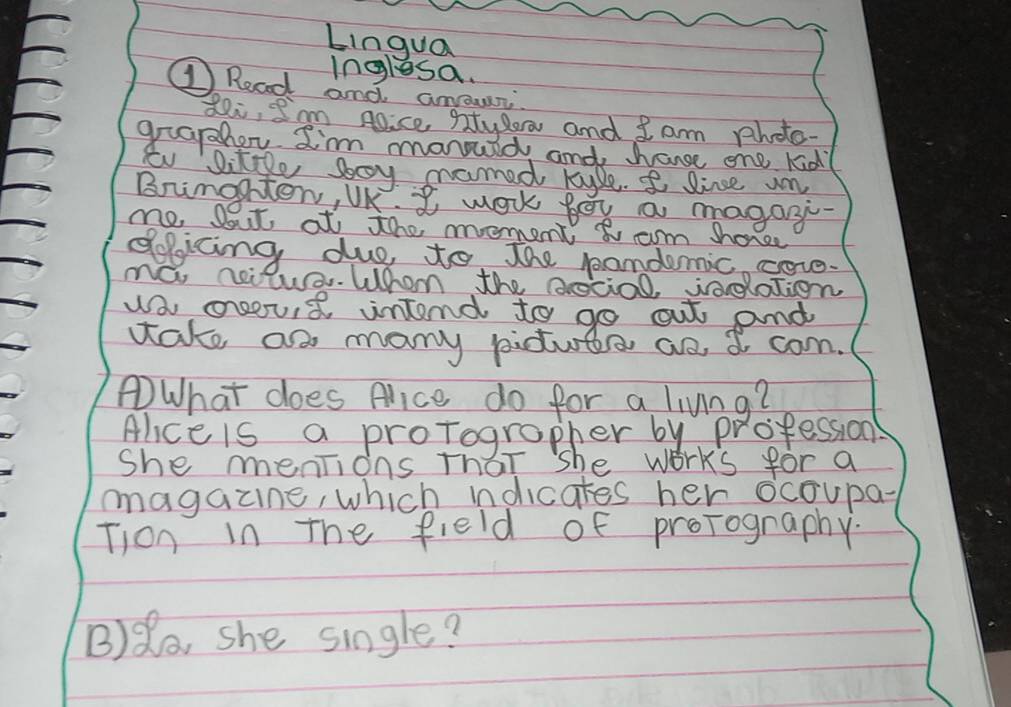 Lingua
Inglesa.
① Read and answer.
Hi, I'm Alice Stylera and I am photo-
grapher. I'm married and have one kid
a little boy named Kyle. I live in
Bringhton, UK. I work for a magazi-
ne but at the moment I am home
officing due to the pandemic coro-
na When the social isolation
is over, I intend to go out and
take as many pictures as I can.
A) What does Alice do for a living?
Alice is a protographer by profession.
She mentions that she works for a
magazine, which indicates her ocoupa-
tion in the field of protography.
B) Is she single?